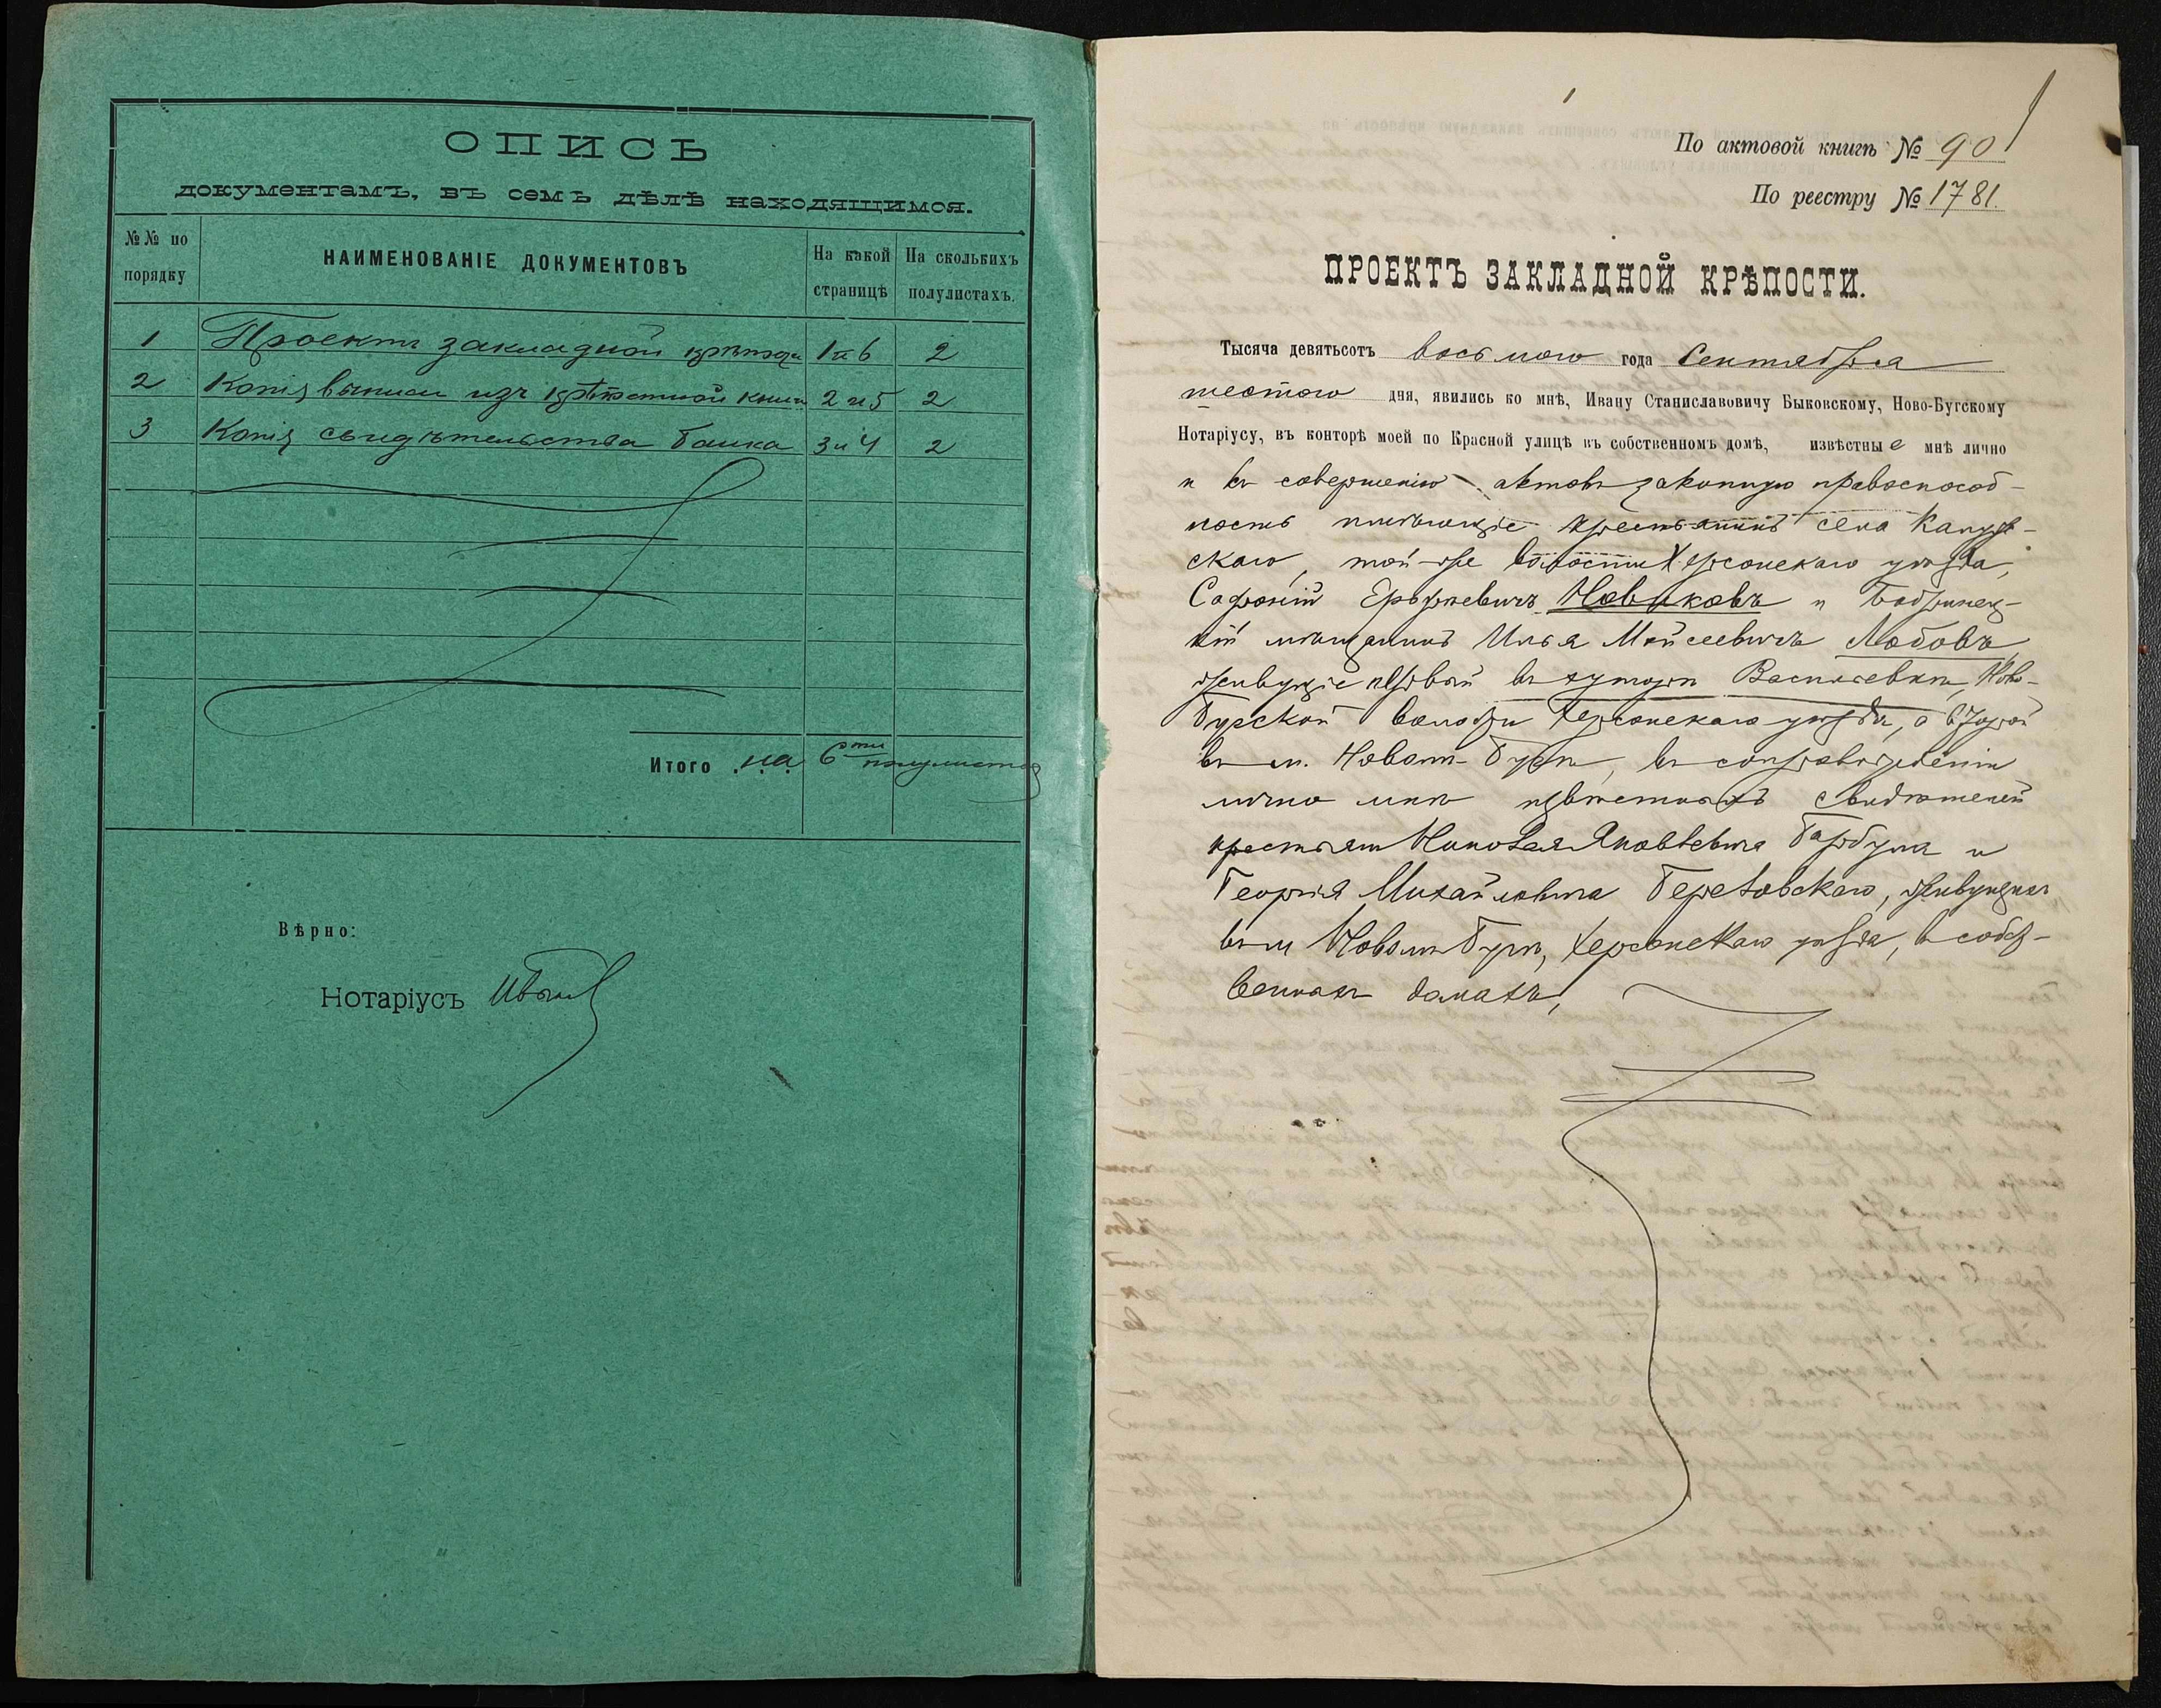 ОПИСЬ
документамъ, въ семъ дѣлѣ находящимся.
№№ по порядку
НАИМЕНОВАНІЕ ДОКУМЕНТОВЪ
На какой страницѣ
На сколькихъ полулистахъ.
1 Проектъ закладной крѣпости 1 и 6 2
2 Копія выписи изъ крѣпостной книги 2 и 5 2
3 Копія свидѣтельства банка 3 и 4 2
Итого на 6ти полулистах
Вѣрно:
Нотаріусъ
1
По актовой книгѣ № 90
По реестру № 1781.
ПРОЕКТЪ ЗАКЛАДНОЙ КРѢПОСТИ.
Тысяча девятьсотъ восьмого года Сентября
шестого дня, явились ко мнѣ, Ивану Станиславовичу Быковскому, Ново-Бугскому
Нотаріусу, въ конторѣ моей по Красной улицѣ въ собственномъ домѣ, извѣстные мнѣ лично
и къ совершенію актовъ законную правоспособ-
ность имѣющіе крестьянинъ села
скаго, той-же волости Херсонскаго уѣзда,
Софроній Новиковъ и Бобринец-
кій мѣщанинъ Илья Мойсеевичъ Лобовъ,
живущіе первый въ хуторѣ Васильевкѣ, Ново-
Бугской волости Херсонскаго уѣзда, а второй
въ м. Новомъ-Бугѣ, въ сопровожденіи
лично мнѣ извѣстныхъ свидѣтелей
крестьянъ Николая Яковлевича и
Георгія Михайловича живущихъ
въ м. Новомъ Бугѣ, Херсонскаго уѣзда, в собст-
венныхъ домахъ,